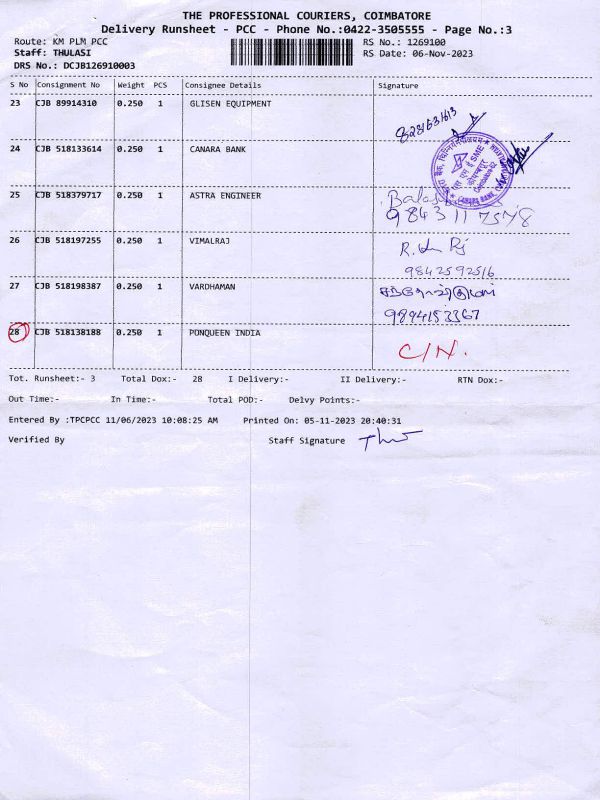 THE PROFESSIONAL COURIERS, COIMBATORE
Delivery Runsheet - PCC - Phone No.:0422-3505555 - Page No.:3
Route: KM PLM PCC RS No.: 1269100
Staff: THULASI RS Date: 06-Nov-2023
DRS No.: DCJB126910003
S No Consignment No Weight PCS Consignee Details Signature
23 CJB 89914310 0.250 1 GLISEN EQUIPMENT
24 CJB 518133614 0.250 1 CANARA BANK
SME
25 CJB 518379717 0.250 1 ASTRA ENGINEER
9843117578
26 CJB 518197255 0.250 1 VIMALRAJ
9842592516
27 CJB 518198387 0.250 1 VARDHAMAN
9894153367
28 CJB 518138188 0.250 1 PONQUEEN INDIA
C/N.
Tot. Runsheet:- 3 Total Dox:- 28 I Delivery:- II Delivery:- RTN Dox:-
Out Time:- In Time:- Total POD:- Delvy Points:-
Entered By :TPCPCC 11/06/2023 10:08:25 AM Printed On: 05-11-2023 20:40:31
Verified By Staff Signature